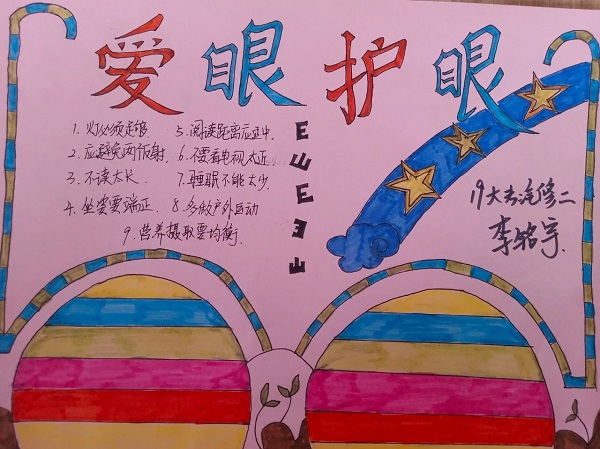 爱眼护眼
1. 灯必须足够 5. 阅读距离应适中
2. 应避免两侧射 6. 不要看电视太近...
3. 不读太长 7. 睡眠不能太少
4. 坐姿要端正 8. 多做户外运动
9. 营养摄取要均衡
E
W
E
E
M
E
19大专汽修二
李铭宇